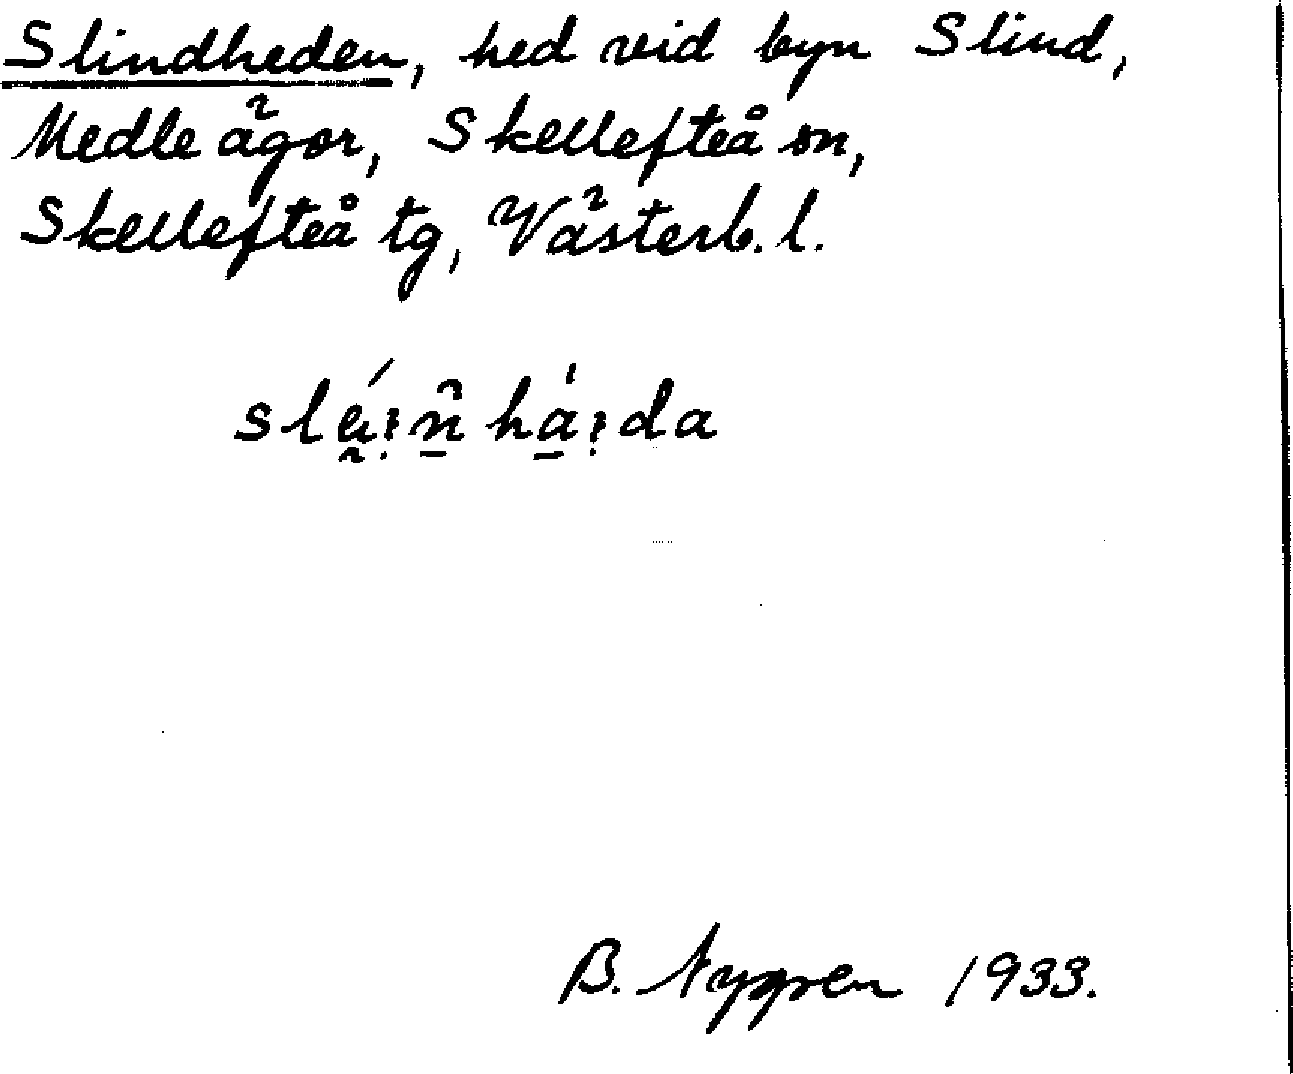 Slindheden, hed vid byn Slind,
Medle ägor, Skellefteå sn,
Skellefteå tg, Västerb. l.
B. Nygren 1933.